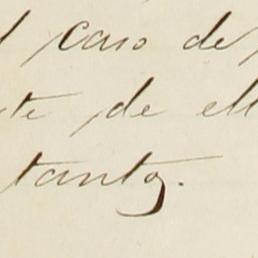 l caso de
te de ell
tanto.